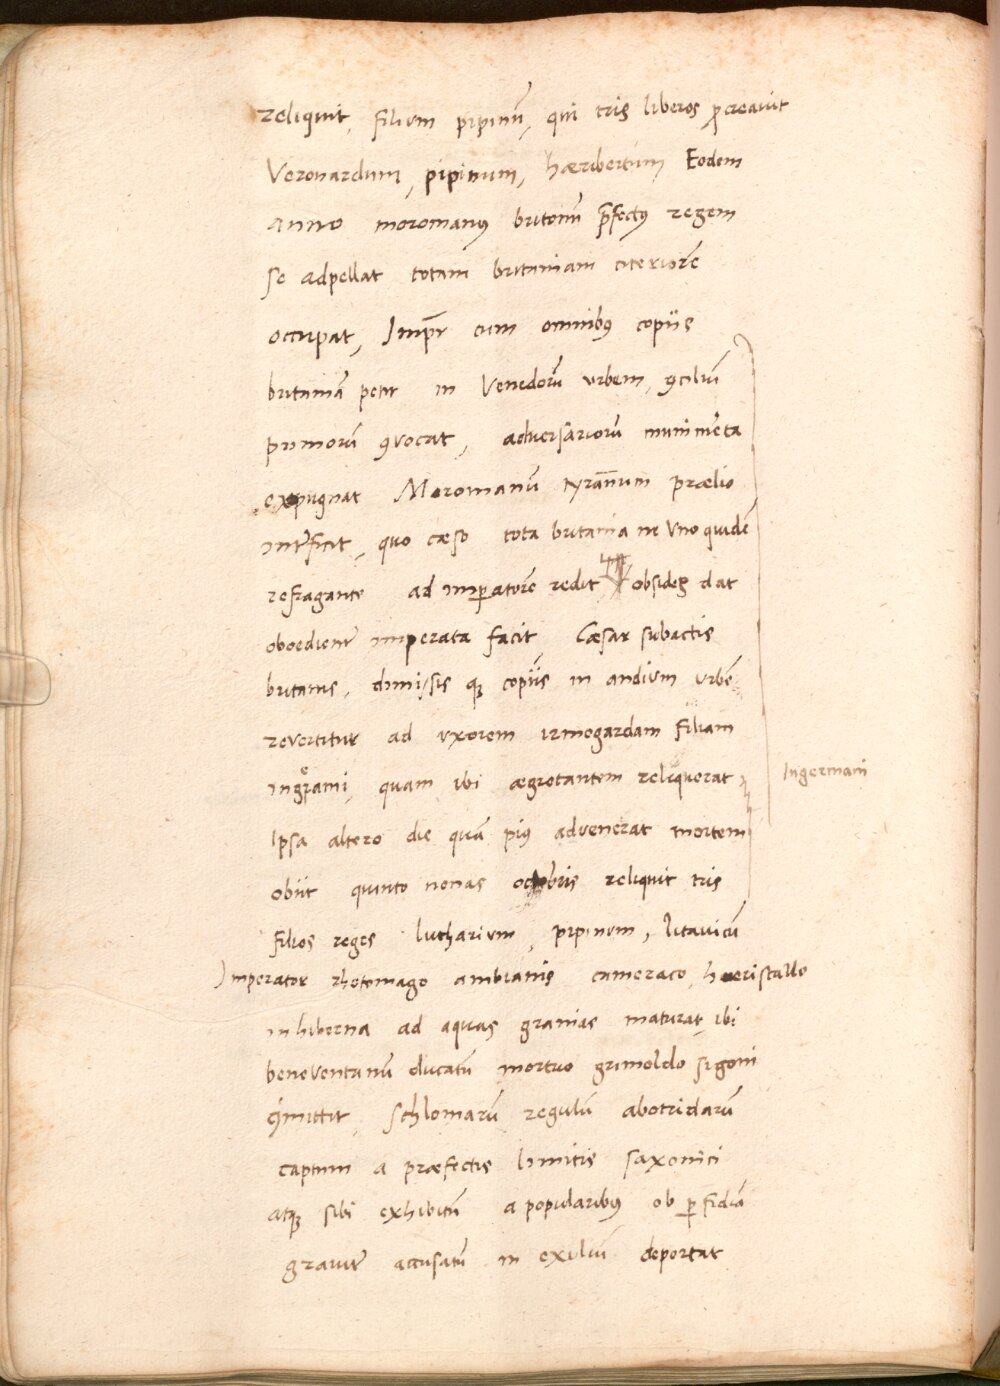 reliquit, filium pipinū, qui tris liberos ꝓcreauit
Veronardum, pipinum, hæribertum Eodem
anno moromanꝰ britonū p̄fectꝰ regem
se adpellat totam britaniam citeriorē
occupat, Imꝑr cum omnibꝰ copiis
britaniā petit in Venedorū urbem, ꝯciliū
primorū ꝯvocat, adversariorū munimēta
expugnat Moromanū tyrānum prælio
interficit, quo cæso tota britania ne Uno quidē
refragante ad imꝑatorē redit obsides dat
oboedienť imperata facit Cæsar subactis
britanis, dimissis qꝫ copiis in andium urbē
revertitur ad uxorem irmogardam filiam
ingrami, quam ibi ægrotantem reliquerat
Ingermani
Ipsa altero die quā piꝰ advenerat mortem
obiit quinto nonas octobris reliquit tris
filios reges lutharium, pipinum, litauicū
Imperator rhotomago ambianis cameraco hæristallo
in hiberna ad aquas granias maturat, ibi
beneventanū ducatū mortuo grimoldo sigoni
ꝯmittit, schlomarū regulū abotridarū
captum a præfectis limitis saxonici
atqꝫ sibi exhibitū a popularibꝰ ob ꝑfidiā
graviť accusatū in exiliū deportat